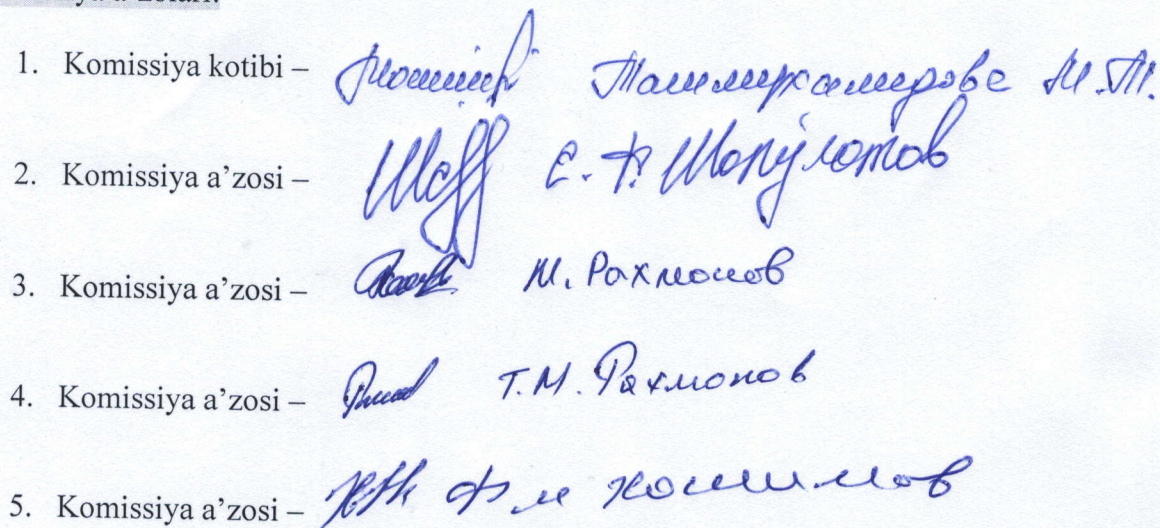 1. Komissiya kotibi – Ташмухамедова М.Т.
2. Komissiya a’zosi – Е.Ф. Шопўлотов
3. Komissiya a’zosi – М. Рахмонов
4. Komissiya a’zosi – Т.М. Рахмонов
5. Komissiya a’zosi – Ф м хошимов